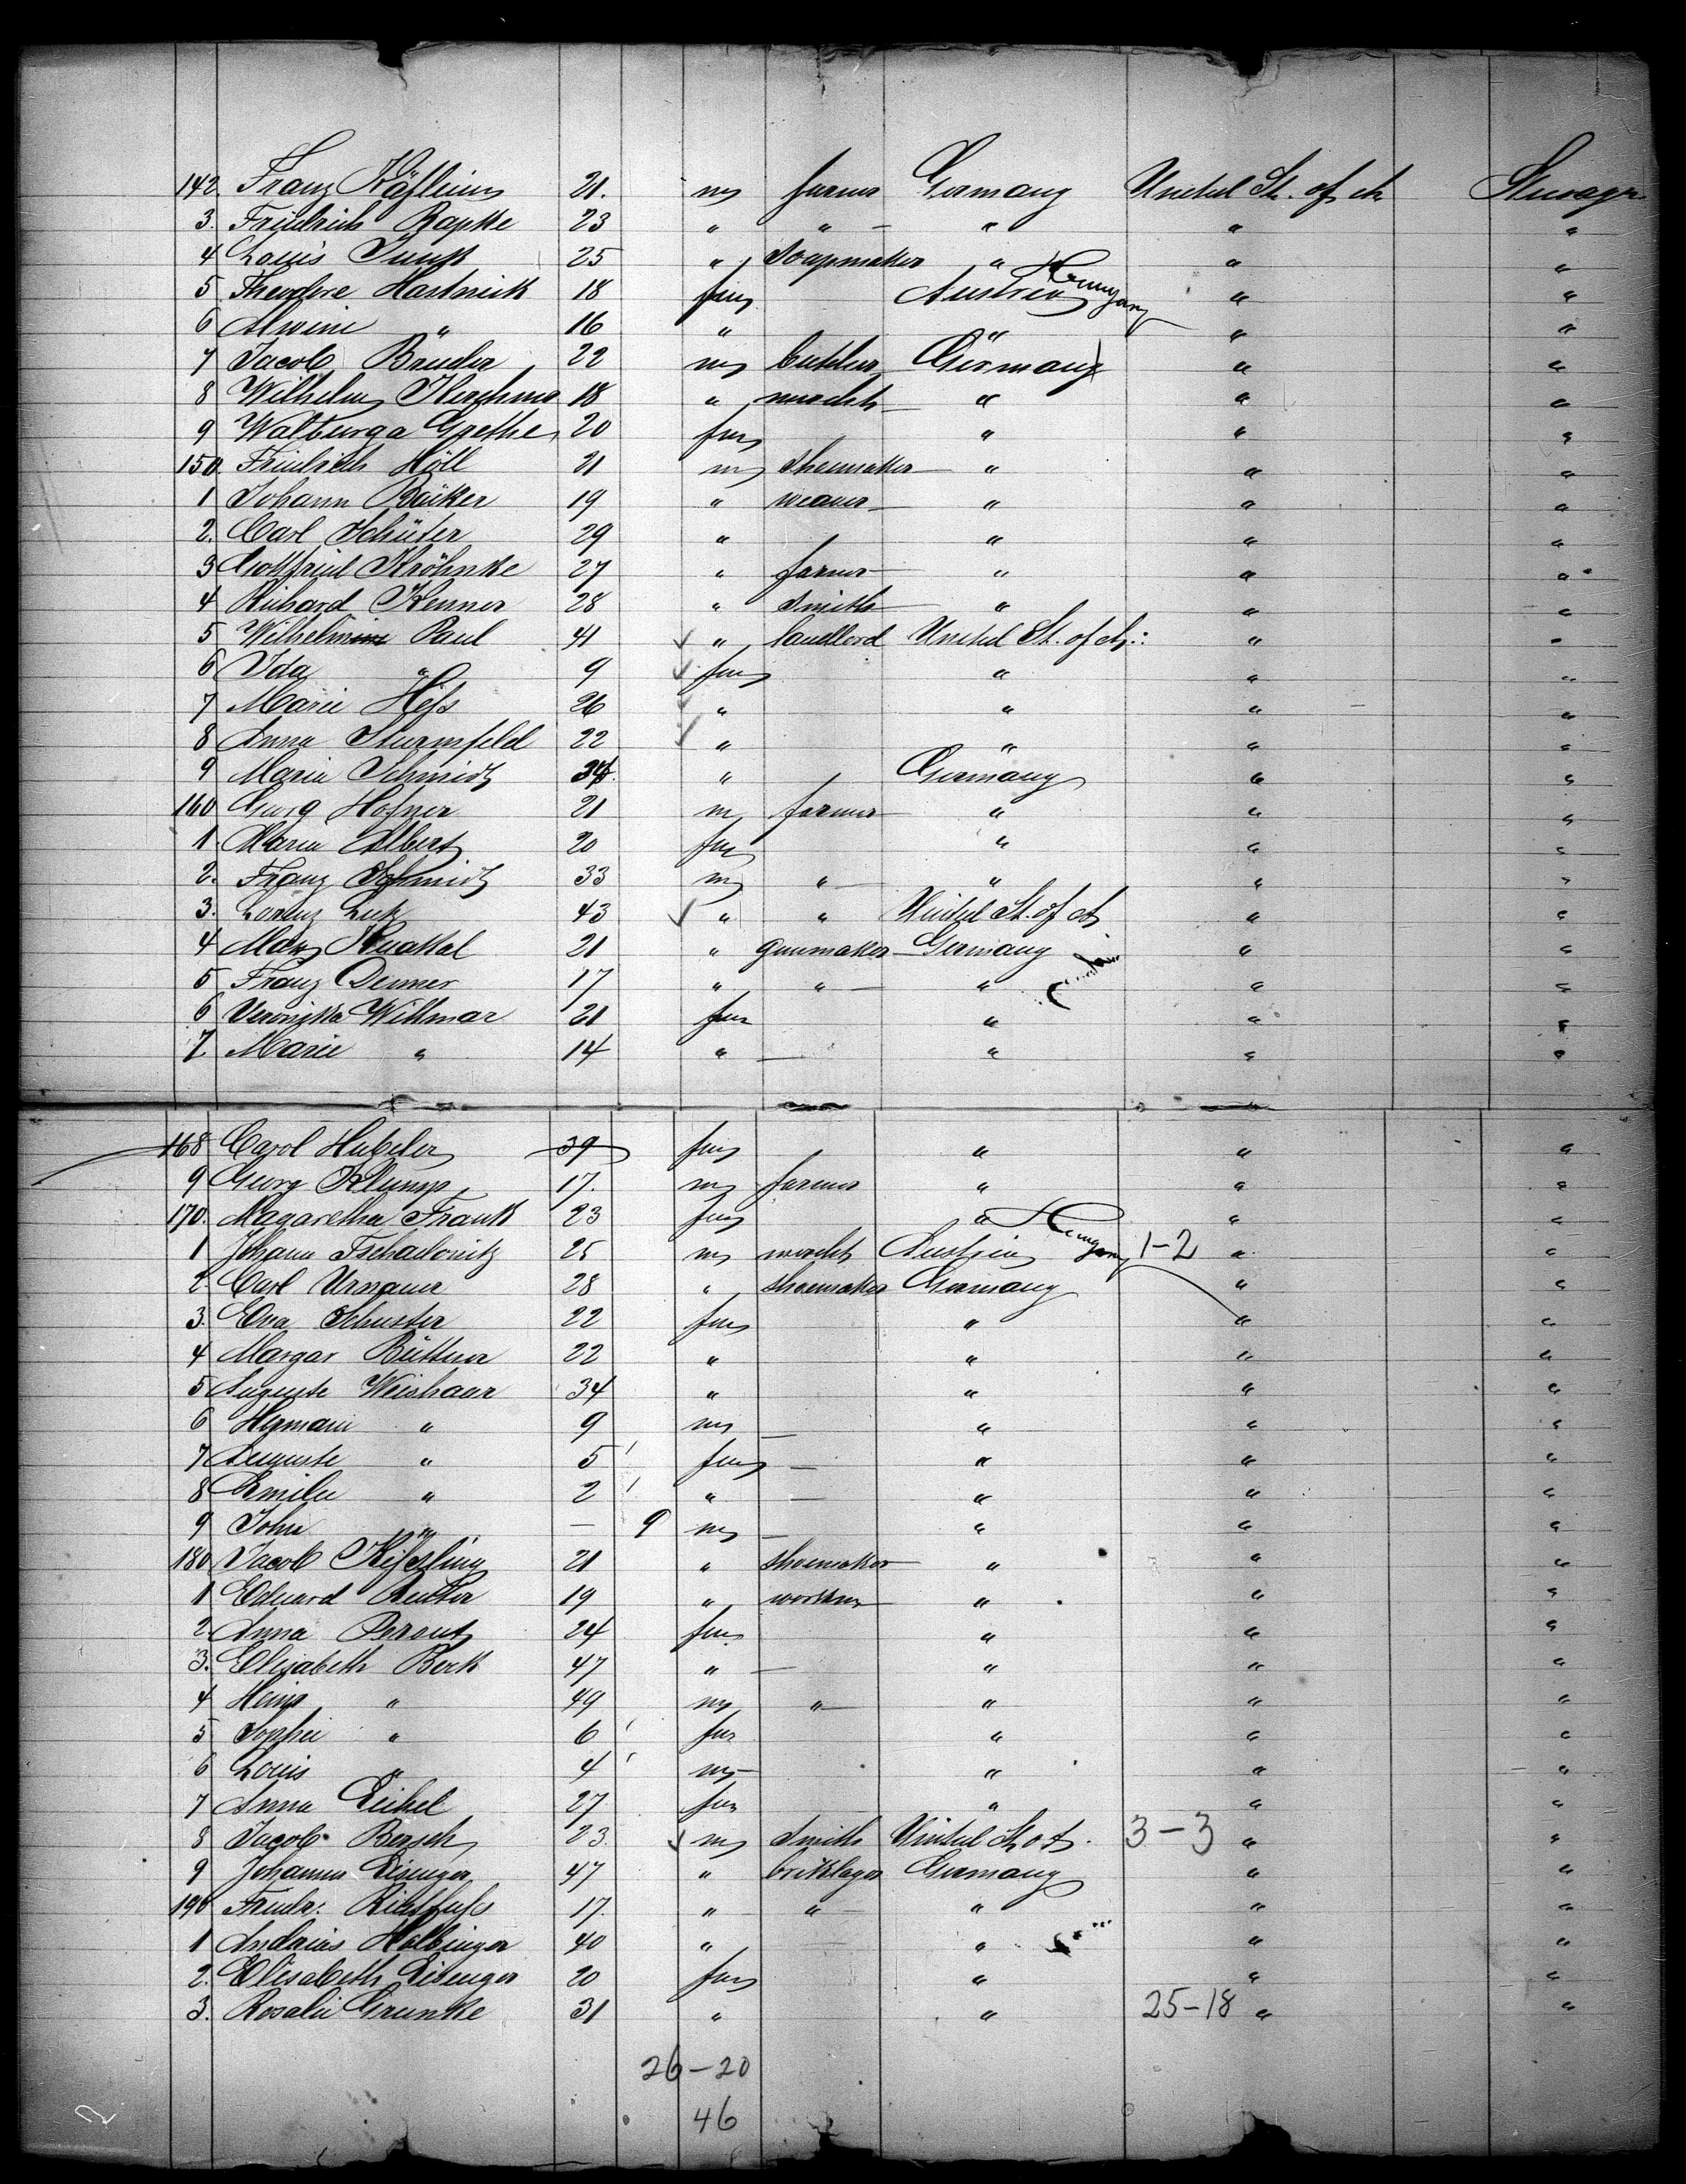 142 Franz Käflein 21. m farmer Germany United St. of A. Steerage
3. Friedrich Rapke 23 " " "  " "
4 Louis Junk 25 " soapmaker " " "
5 Theodore Hastnick 18 fm Austria Hungary " "
6 Alwine " 16 " " " "
7 Jacob Bruder 22 m butcher Germany " "
8 Wilhelm Kirschner 18 " mercht " " "
9 Walburga Grethe 20 fm " " "
150. Friedrich Höll 21 m shoemaker " " "
1 Johann Bäcker 19 " weaver " " "
2. Carl Schüter 29 " " " "
3 Gottfried Kröhnke 27 " farmer " " "
4 Richard Kenner 28 " smith " " "
5 Wilhelm Paul 41 " landlord United St. of A. " "
6 Ida " 9 fm " " "
7 Marie Heß 26 " " " "
8 Anna Sturmfeld 22 " " " "
9 Maria Schmidt 34. " Germany " "
160 Georg Hofner 21 m farmer " " "
1. Maria Albert 20 fm " " "
2. Franz Schmidt 33 m " " " "
3. Lorenz Lutz 43 " " United St. of A " "
4 Max 21 " gunmaker Germany " "
5 Franz Denner 17 " " " " "
6 Veronika Willmar 21 fm " " "
7. Marie " 14 " " " "
168 Carol Hubeler 39 fm " " "
9 Georg Klump 17. m farmer " " "
170. Magaretha Frank 23 fm " " "
1 Johann Tschadonitz 25 m mercht Austria Hungary 1-2 " "
2. Carl Urnauer 28 " shoemaker Germany " "
3. Eva Schuster 22 fm " " "
4 Margar Büttner 22 " " " "
5 Auguste Weishaar 34 " " " "
6 Hermann " 9 m " " "
7 Auguste " 5 fm " " "
8 Emilie " 2 " " " "
9 John " — 9 m " " "
180 Jacob Kißling 21 " shoemaker " " "
1 Eduard Reuter 19 " workm " " "
2. Anna 24 fm " " "
3. Elisabeth Berk 47 " " " "
4 Heinr " 49 m " " " "
5 Sophie " 6 fm " " "
6 Louis " 4 m " " "
7 Anna Eichel 27 fm " " "
8 Jacob Bersch 23. m smith United St. o A. 3-3 " "
9 Johannes Eisenger 47 " briklayer Germany " "
190 Friedr. 17. " " " " "
1 Andreas Holbinger 40 " " " "
2. Elisabeth Eisenger 20 fm " " "
3. Rosalie Grunke 31 " " 25-18 " "
26-20
46
2